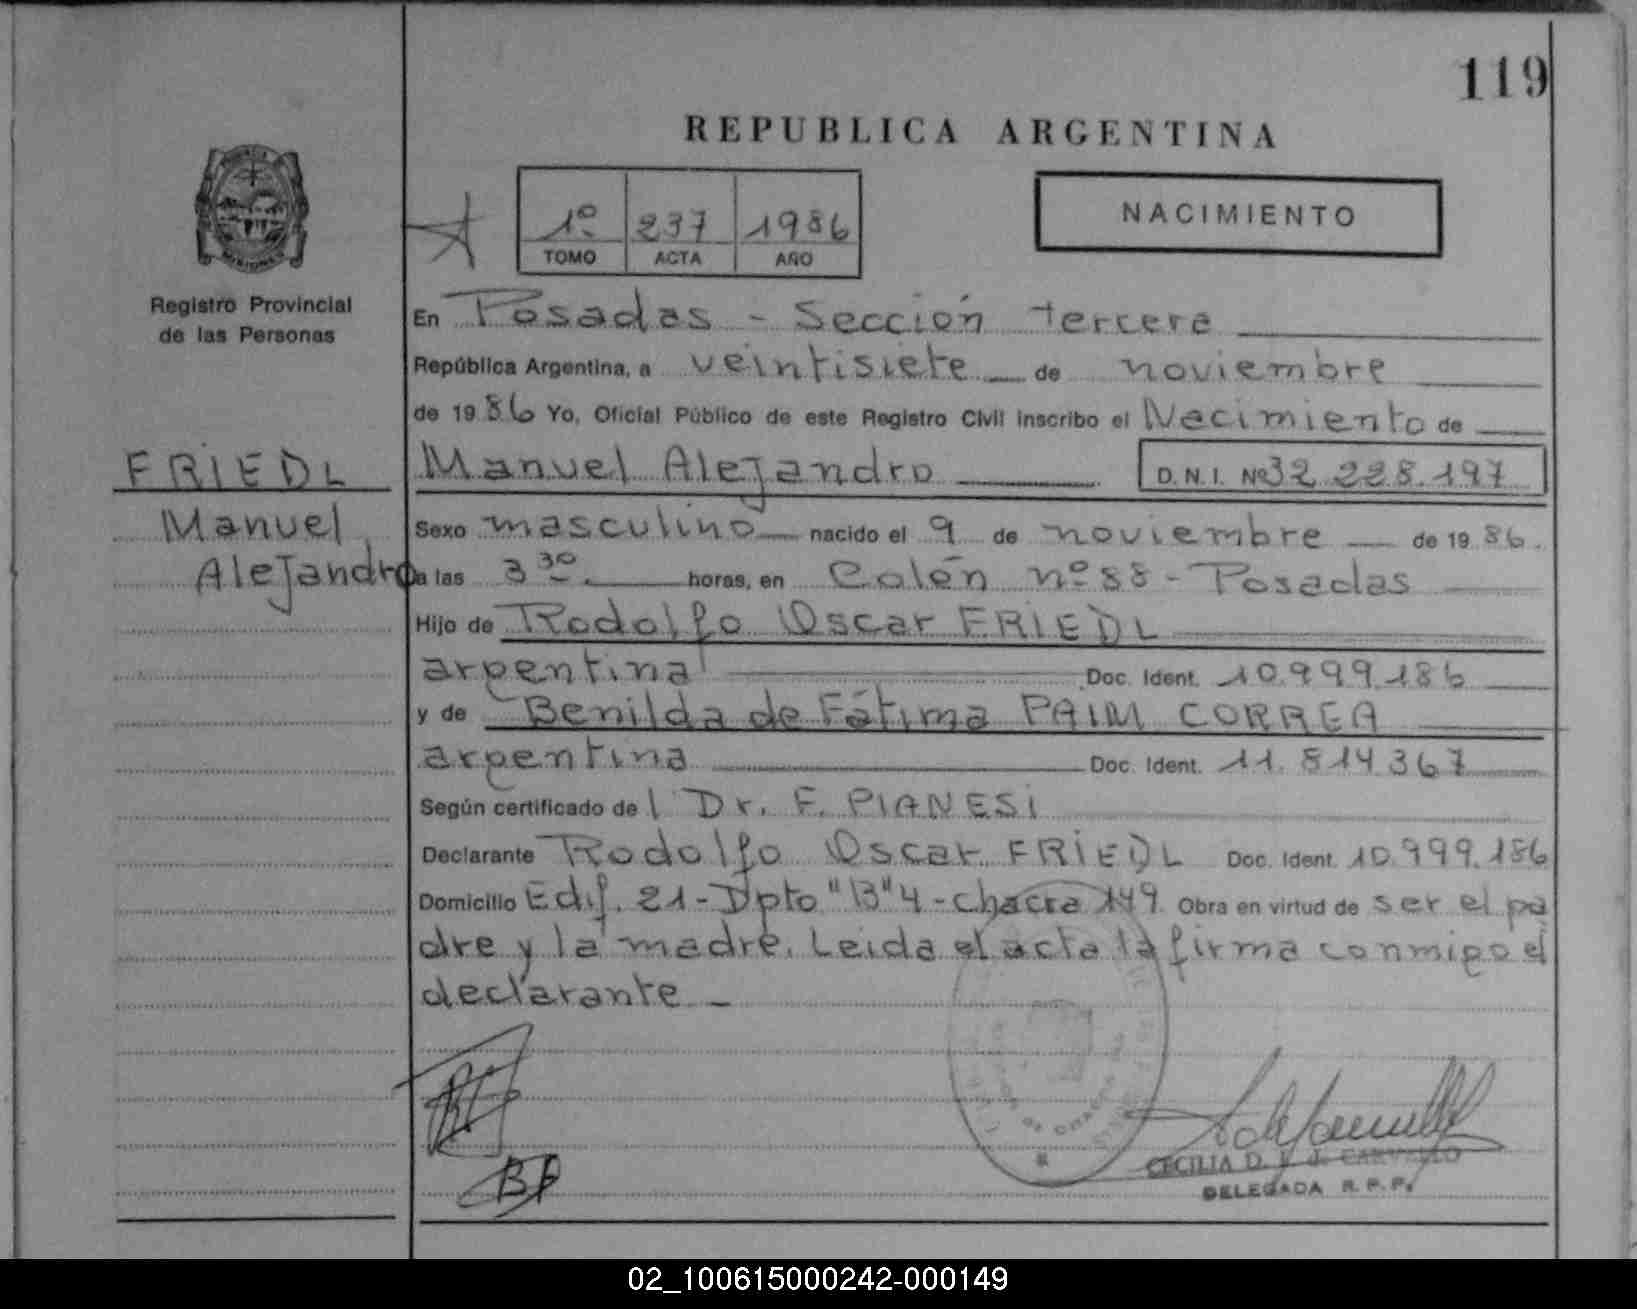 119
REPUBLICA ARGENTINA
1º 237 1986
TOMO ACTA AÑO
NACIMIENTO
Registro Provincial
de las Personas
FRIEDL
Manuel
Alejandro
En Posadas - Sección tercera
República Argentina, a veintisiete de noviembre
de 1986 Yo, Oficial Público de este Registro Civil inscribo el Nacimiento de
Manuel Alejandro D.N.I. Nº 32.228.197
Sexo masculino nacido el 9 de noviembre de 1986.
a las 3 30. horas, en Colón nº 88 - Posadas
Hijo de Rodolfo Oscar FRIEDL
argentina Doc. Ident. 10.999.186
y de Benilda de Fátima PAIM CORREA
argentina Doc. Ident. 11.814.367
Según certificado del Dr. F. PIANESI
Declarante Rodolfo Oscar FRIEDL Doc. Ident. 10.999.186
Domicilio Edif. 21 - Dpto "B" 4 - chacra 149 Obra en virtud de ser el pa
dre y la madre. Leida el acta la firma conmigo el
declarante -
CECILIA D. CARVALLO
DELEGADA R.P.P.
02_100615000242-000149